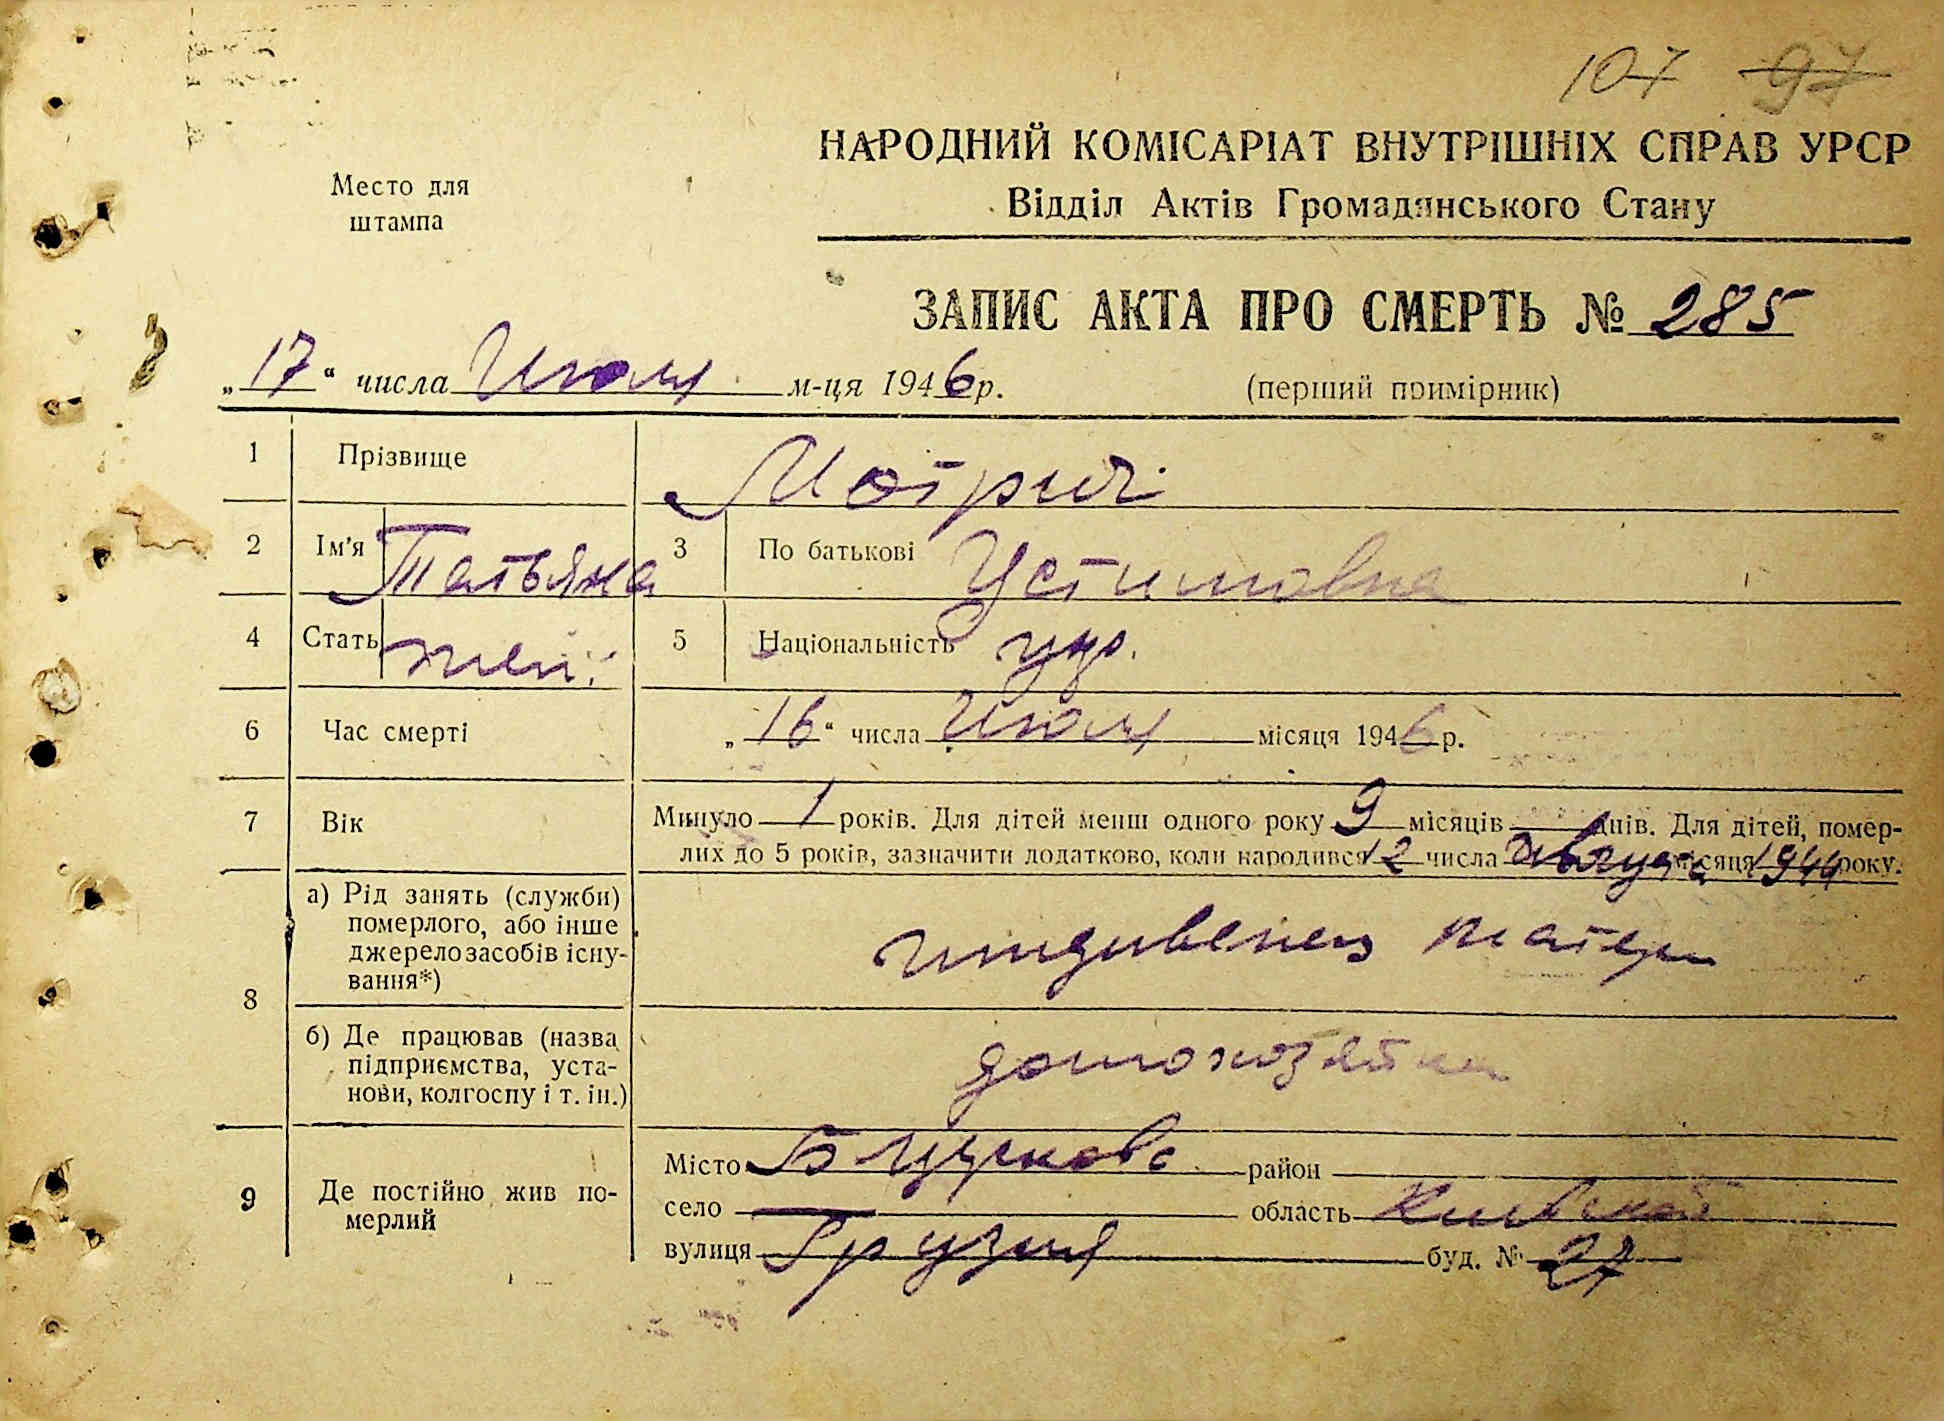 107 97
НАРОДНИЙ КОМІСАРІАТ ВНУТРІШНІХ СПРАВ УРСР
Место для
штампа
Відділ Актів Громадянського Стану
ЗАПИС АКТА ПРО СМЕРТЬ № 285
„17“ числа Июля м-ця 1946 р.
(перший примірник)
1 Прізвище Мотрич
2 Ім'я Татьяна 3 По батькові Устимовна
4 Стать жен. 5 Національність укр.
6 Час смерті „16“ числа Июля місяця 1946 р.
7 Вік Минуло 1 років. Для дітей менш одного року 9 місяців днів. Для дітей, помер-
лих до 5 років, зазначити додатково, коли народився 12 числа Августа місяця 1944 року.
8 а) Рід занять (служби)
померлого, або інше
джерело засобів існу-
вання*)
иждивенец матери
б) Де працював (назва
підприємства, уста-
нови, колгоспу і т. ін.)
домохозяйка
9 Де постійно жив по-
мерлий
Місто район
село область Киевской
вулиця Грузия буд. № 27